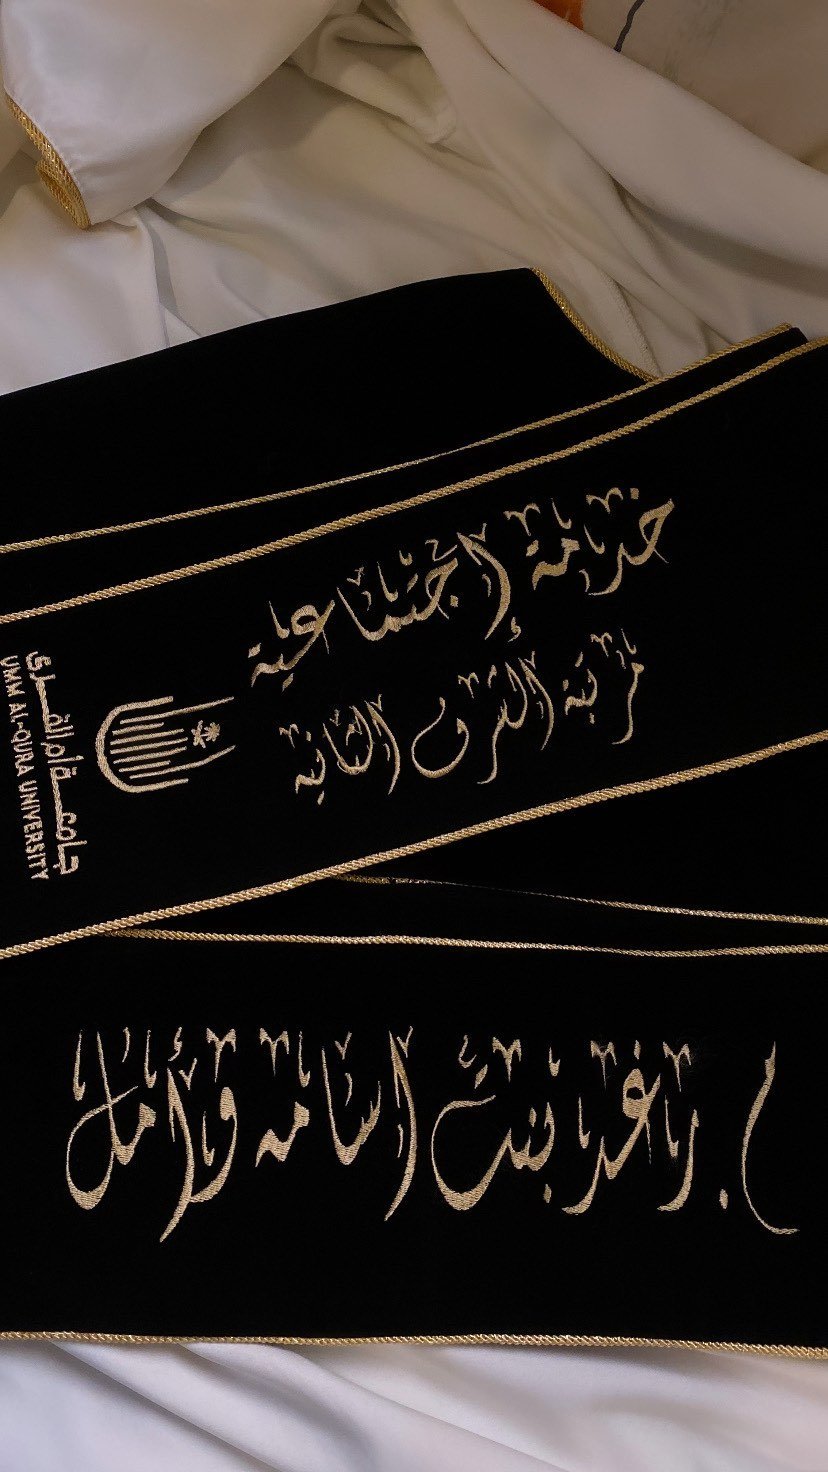 خدمة إجتماعية
مرتبة الشرف الثانية
جامعة أم القرى
UMM AL-QURA UNIVERSITY
أ. رغد بنت أسامه وأمل